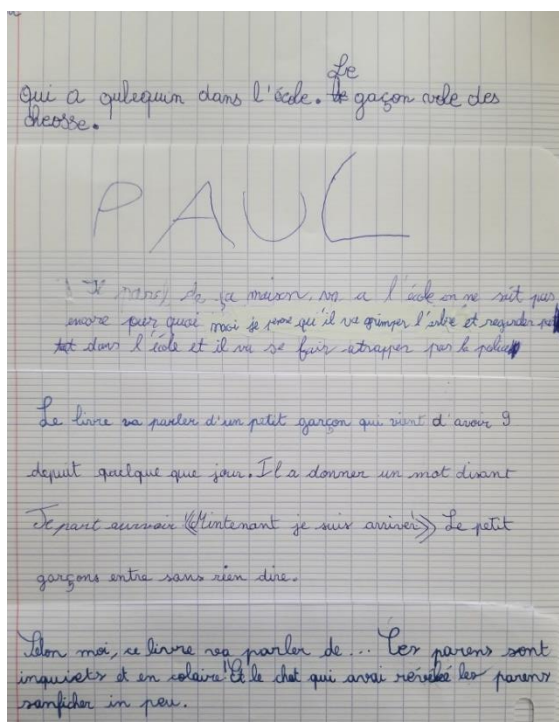 Le
Qui a qulequin dans l'école. le gaçon vole des
cheosse.
PAUL
de ça maison, va a l'école on ne sait pas
encore pour quoi moi je pense qu'il va grimper l'arbre et regarder
dans l'école et il va se fair atrapper par la police
Le livre va parler d'un petit garçon qui vient d'avoir 9
depuit quelque que jour. Il a donner un mot disant
Je part aurvoir «Mintenant je suis arriver» Le petit
garçons entre sans rien dire.
Selon moi, ce livre va parler de... Les parens sont
inquiets et en colaire! Et le chat qui avai réveiée les parens
sanficher in peu.